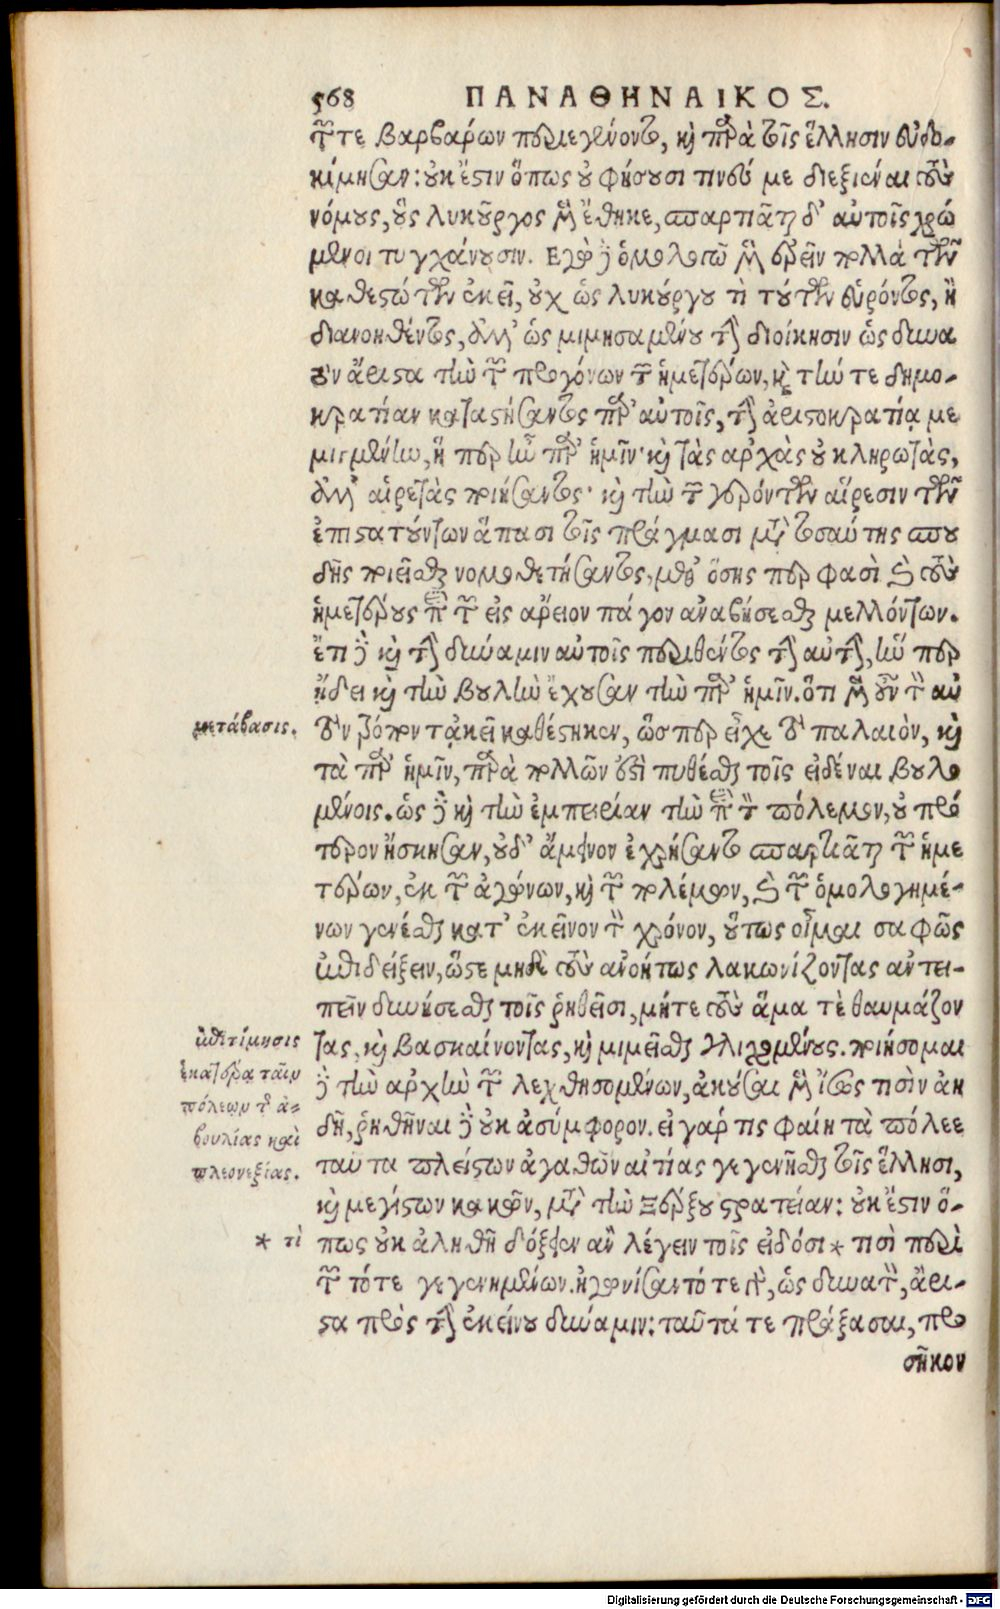 568 ΠΑΝΑΘΗΝΑΙΚΟΣ.
τῶν τε βαρβάρων περιεγένοντο, καὶ παρὰ τοῖς ἕλλησιν εὐδο-
κίμησαν: οὐκ ἔστιν ὅπως οὐ φήσουσί τινές με διεξιέναι τοὺς
νόμους, οὓς λυκοῦργος μὲν ἔθηκε, σπαρτιᾶται δ' αὐτοῖς χρώ
μενοι τυγχάνουσιν. Εγὼ δὲ ὁμολογῶ μὲν ἐρεῖν πολλὰ τῶν
καθεστώτων ἐκεῖ, οὐχ ὡς λυκούργου τὶ τούτων εὑρόντος, ἢ
διανοηθέντος, ἀλλ' ὡς μιμησαμένου τὴν διοίκησιν ὡς δυνα
τὸν ἄριστα τὴν τῶν προγόνων τῶν ἡμετέρων, καὶ τήν τε δημο-
κρατίαν καταστήσαντος παρ' αὐτοῖς, τὴν ἀριστοκρατίᾳ με
μιγμένην, ἥ περ ἦν παρ' ἡμῖν· καὶ τὰς ἀρχὰς οὐ κληρωτὰς,
ἀλλ' αἱρετὰς ποιήσαντος· καὶ τὴν τῶν γερόντων αἵρεσιν τῶν
ἐπιστατούντων ἅπασι τοῖς πράγμασι μετὰ τοσαύτης σπου
δῆς ποιεῖσθαι νομοθετήσαντος, μεθ' ὅσης περ φασὶ καὶ τοὺς
ἡμετέρους περὶ τῶν εἰς ἄρειον πάγον ἀναβήσεσθαι μελλόντων.
ἔτι δὲ καὶ τὴν δύναμιν αὐτοῖς περιθέντος τὴν αὐτὴν, ἥν περ
ᾔδει καὶ τὴν βουλὴν ἔχουσαν τὴν παρ' ἡμῖν. ὅτι μὲν οὖν τὸν αὐ
μετάβασις. τὸν τρόπον τἀκεῖ καθέστηκεν, ὥσπερ εἶχε τὸ παλαιὸν, καὶ
τὰ παρ' ἡμῖν, παρὰ πολλῶν ἔστι πυθέσθαι τοῖς εἰδέναι βουλο
μένοις. ὡς δὲ καὶ τὴν ἐμπειρίαν τὴν περὶ τὸν πόλεμον, οὐ πρό
τερον ἤσκησαν, οὐδ' ἄμεινον ἐχρήσαντο σπαρτιᾶται τῶν ἡμε
τέρων, ἐκ τῶν ἀγώνων, καὶ τῶν πολέμων, καὶ τῶν ὁμολογημέ-
νων γενέσθαι κατ' ἐκεῖνον τὸν χρόνον, οὕτως οἶμαι σαφῶς
ἐπιδείξειν, ὥστε μηδὲ τοὺς ἀνοήτως λακωνίζοντας ἀντει-
πεῖν δυνήσεσθαι τοῖς ῥηθεῖσι, μήτε τοὺς ἅμα τὲ θαυμάζον
ἐπιτίμησις τας, καὶ βασκαίνοντας, καὶ μιμεῖσθαι γλιχομένους. ποιήσομαι
ἑκατέρᾳ ταῖν δὲ τὴν ἀρχὴν τῶν λεχθησομένων, ἀκοῦσαι μὲν ἴσως τισὶν ἀη
πόλεων τῆς ἀ- δῆ, ῥηθῆναι δὲ οὐκ ἀσύμφορον. εἰ γάρ τις φαίη τὰ πόλεε
βουλίας καὶ ταύτα πλείστων ἀγαθῶν αἰτίας γεγενῆσθαι τοῖς ἕλλησι,
πλεονεξίας. καὶ μεγίστων κακῶν, μετὰ τὴν Ξέρξου στρατείαν: οὐκ ἔστιν ὅ-
* τὶ πως οὐκ ἀληθῆ δόξειεν ἂν λέγειν τοῖς εἰδόσι * τισὶ περὶ
τῶν τότε γεγενημένων. ἠγωνίσαντό τε γὰρ, ὡς δυνατὸν, ἄρι-
στα πρὸς τὴν ἐκείνου δύναμιν: ταῦτά τε πράξασαι, προ
σῆκον
Digitalisierung gefördert durch die Deutsche Forschungsgemeinschaft - DFG